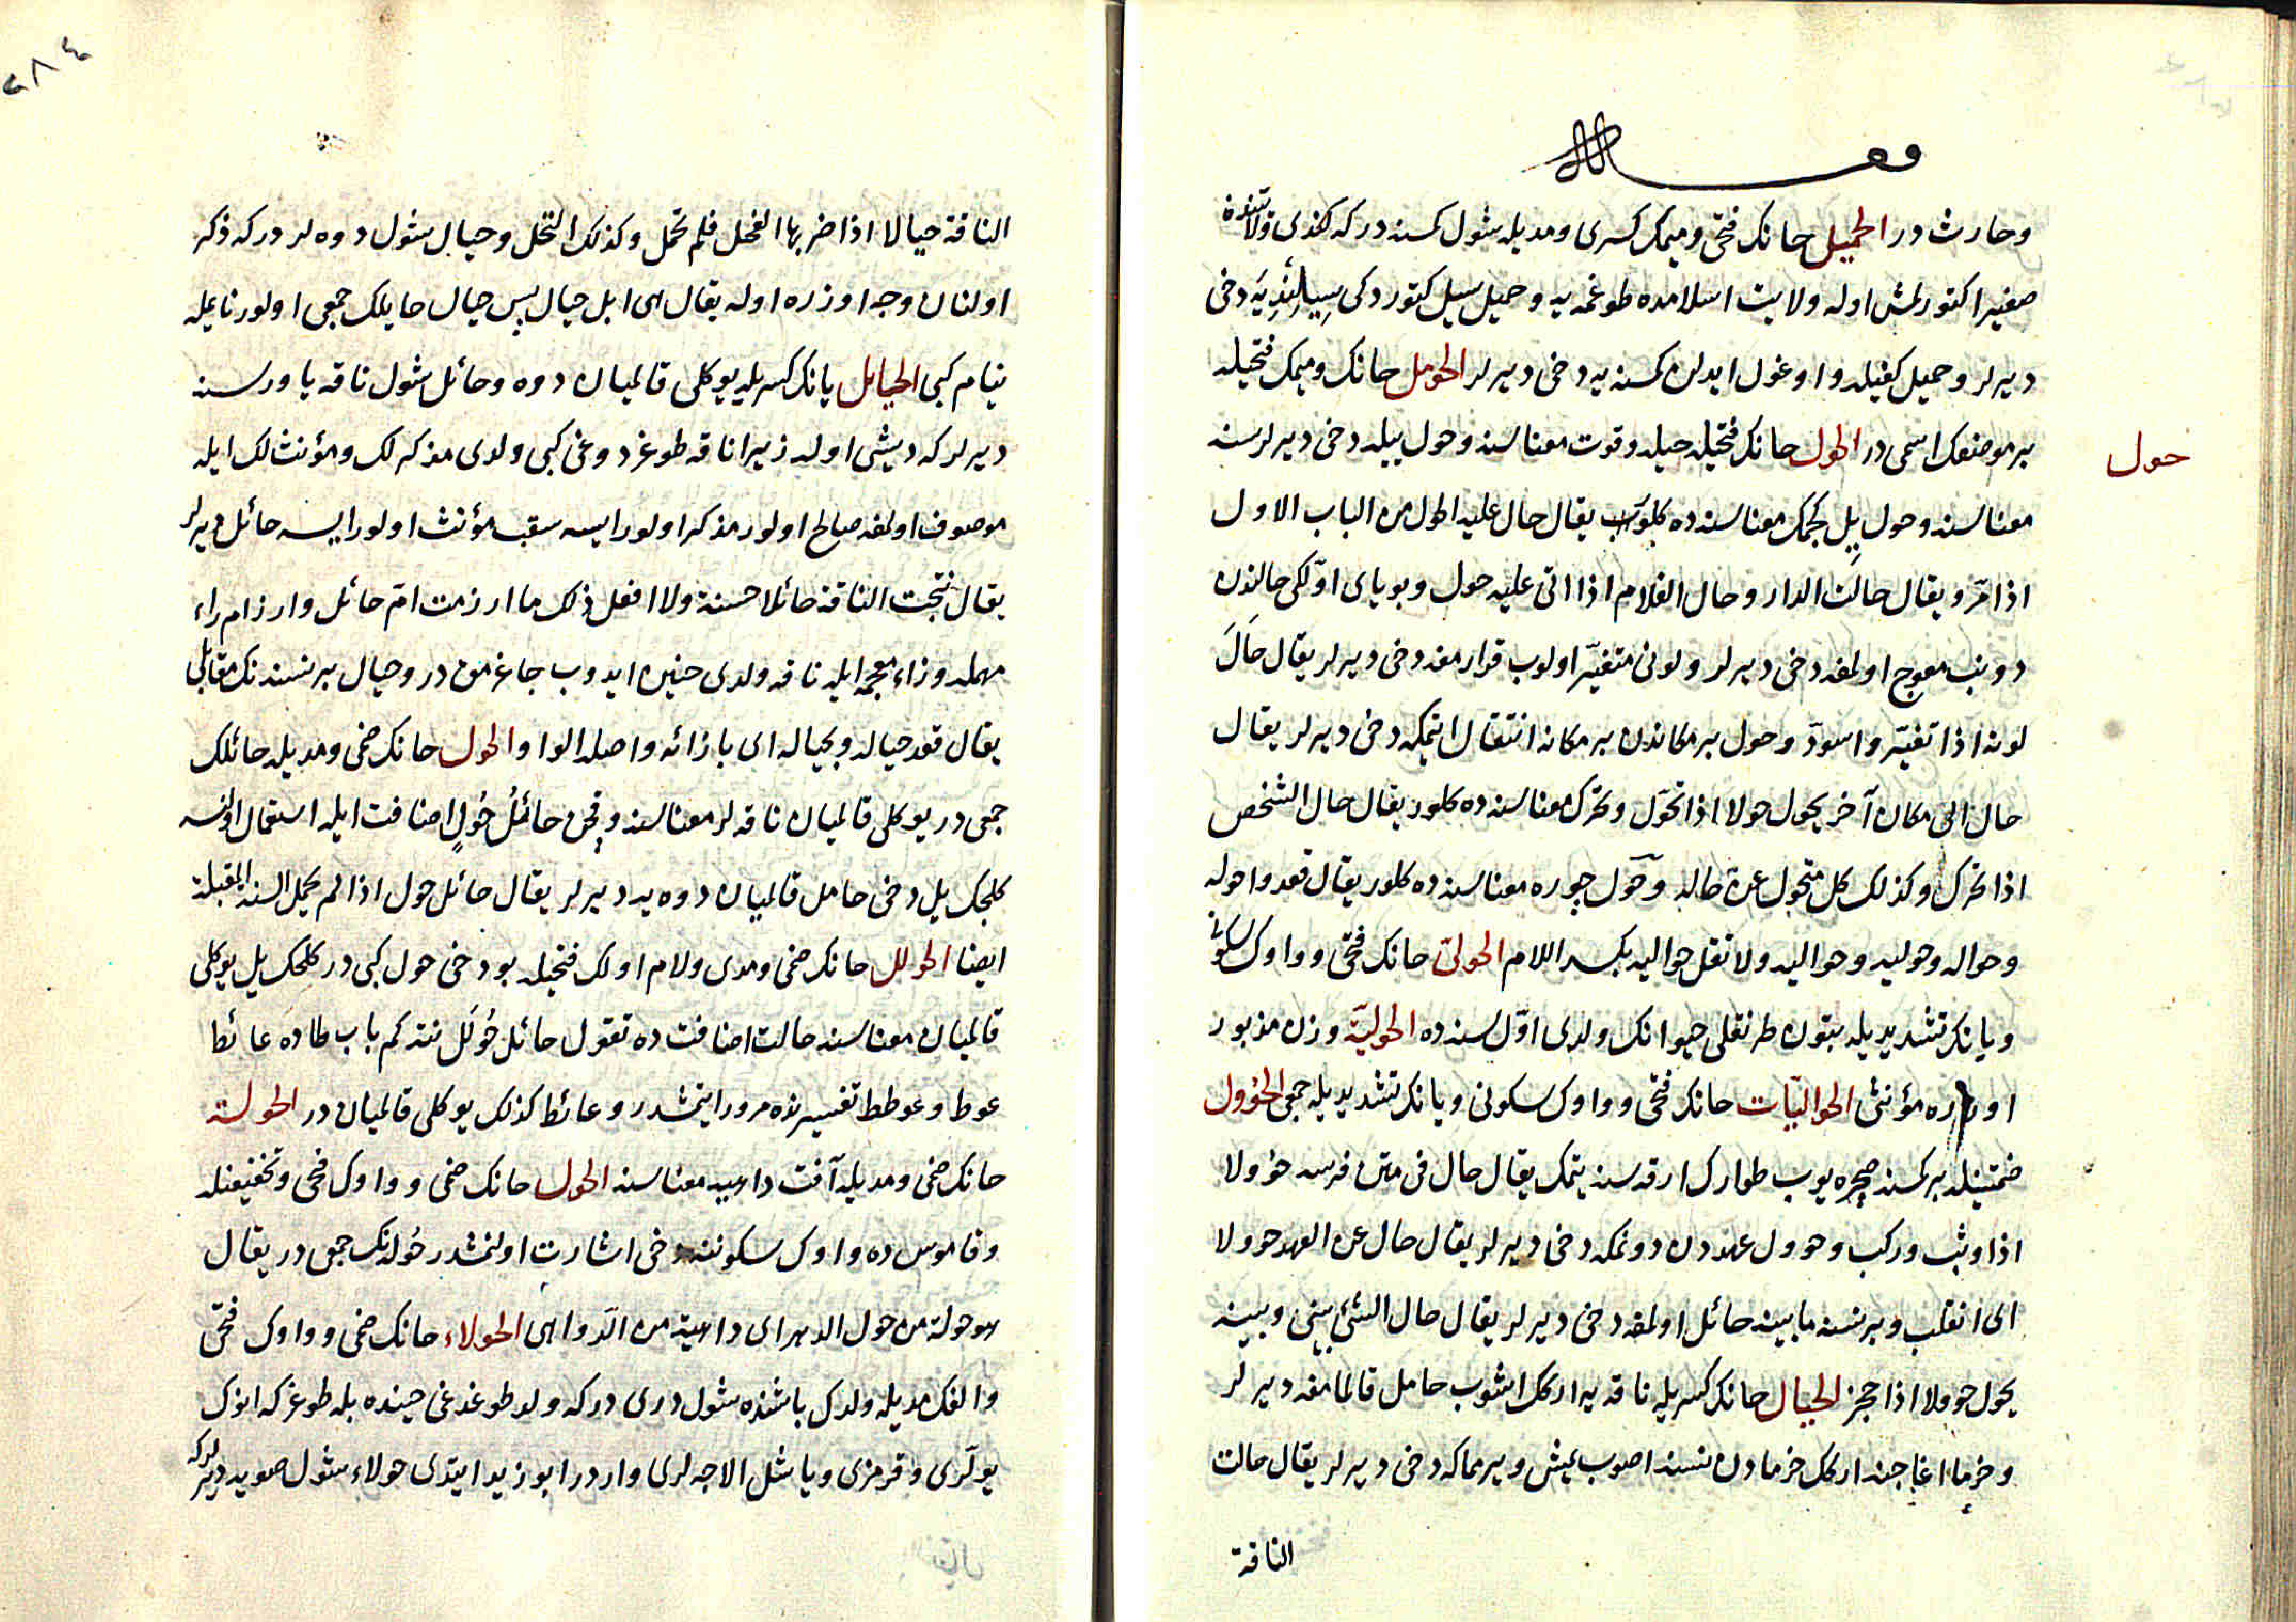 وقف لله
وحارث در الحميل حانك فتحى وميمك كسرى ومديله شول كمسنه در كه كندى ولايتنده
صغيرا كتورلمش اوله ولايت اسلامده طوغمه يه وحميل سيل كتوردكى يه دخى
ديرلر وحميل كفيله واوغول ايدلن كمسنه يه دخى ديرلر الحومل حانك وميمك فتحيله
حول
بر موضعك اسمى در الحول حانك فتحيله حيله وقوت معناسنه وحول ييله دخى ديرلر سنه
معناسنه وحول ييل كچمك معناسنده كلور يقال حال عليه الحول من الباب الاول
اذا مرّ ويقال حالت الدار وحال الغلام اذا اتى عليه حول وبوياى اوّلكى حالندن
دونب معوج اولمغه دخى ديرلر ولونى متغيّر اولوب قرارمغه دخى ديرلر يقال حَالَ
لونه اذا تغيّر واسودّ وحول بر مكاندن بر مكانه انتقال ايتمكه دخى ديرلر يقال
حال الى مكان آخر يحول حولا اذا تحوّل وتحرك معناسنده كلور يقال حال الشخص
اذا تحرك وكذلك كل متحول عن حاله وحَوْل چوره معناسنده كلور يقال قعدوا حوله
وحواله وحوليه وحواليه ولا تقل حواليه بكسر اللام الحولىّ حانك فتحى وواوك سكونى
ويانك تشديديله بتون طرنقلى حيوانك ولدى اوّل سنه ده الحوليّة وزن مذبور
اوزره مؤنثى الحواليّات حانك فتحى وواوك سكونى ويانك تشديديله جمعى الحُوول
ضمتينله بر كمسنه صچره يوب طوارك ارقه سنه بنمك يقال حال فى متن فرسه حؤولا
اذا وثب وركب وحوول عهددن دونمكه دخى ديرلر يقال حال عن العهد حوولا
اى انقلب وبر نسنه مابينه حائل اولمغه دخى ديرلر يقال حال الشئ بينى وبينه
يحول حوولا اذا حجز الحيال حانك كسريله ناقه يه اركك اشوب حامل قالمامغه ديرلر
وخرما اغاجنه اركك خرمادن نسنه اصوب يمش ويرمماكه دخى ديرلر يقال حالت
الناقة
٢٨٤
الناقة حيالا اذا ضربها الفحل فلم تحمل وكذلك النخل وحيال شول دوه لر دركه ذكر
اولنان وجه اوزره اوله يقال هى ابل حيال پس حيال حايلك جمعى اولور نايمله
نيام كبى الحيائل يانك كسريله يوكلى قالميان دوه وحائل شول ناقه ياوروسنه
ديرلر كه ديشى اوله زيرا ناقه طوغردوغى كبى ولدى مذكرلك ومؤنث لك ايله
موصوف اولمغه صالح اولور مذكر اولورايسه سقب مؤنث اولورايسه حائل ديرلر
يقال نتجت الناقة حائلا حسنة ولا افعل ذلك ما ارزمت امّ حائل وارزام راء
مهمله وزاء معجمه ايله ناقه ولدى حنين ايدوب چاغرمق در وحيال بر نسنه نك مقابلى
يقال قعد حياله وبحياله اى بازائه واصله الواو الحول حانك ضمى ومديله حائلك
جمعى در يوكلى قالميان ناقه لر معناسنه وقچن حائلُ حُولٍ اضافت ايله استعمال اولنسه
كلجك ييل دخى حامل قالميان دوه يه ديرلر يقال حائل حول اذا لم تحمل السنة المقبلة
ايضا الحولل حانك ضمى ومدى ولام اولك فتحيله بو دخى حول كبى در كلجك ييل يوكلى
قالميان معناسنه حالت اضافت ده تقول حائل حُولَل نته كم باب طاده عائط
عوط وعوطط تفسيرنده مرور ايتمشدر وعائط كذلك يوكلى قالميان در الحولة
حانك ضمى ومديله آفت داهيه معناسنه الحول حانك ضمى وواوك فتحى وتخفيفله
وقاموس ده واوك سكوننه دخى اشارت اولنمشدر حُوله نك جمعى در يقال
هو حولة من حول الدهر اى داهية من الدّواهى الحولاء حانك ضمى وواوك فتحى
والفك مديله ولدك باشنده شول درى دركه ولد طوغدغى حينده بله طوغر كه انك
يوللرى وقرمزى وياشل الاجه لرى واردر ابو زيد ايتدى حولاء شول صويه ديرلر كه